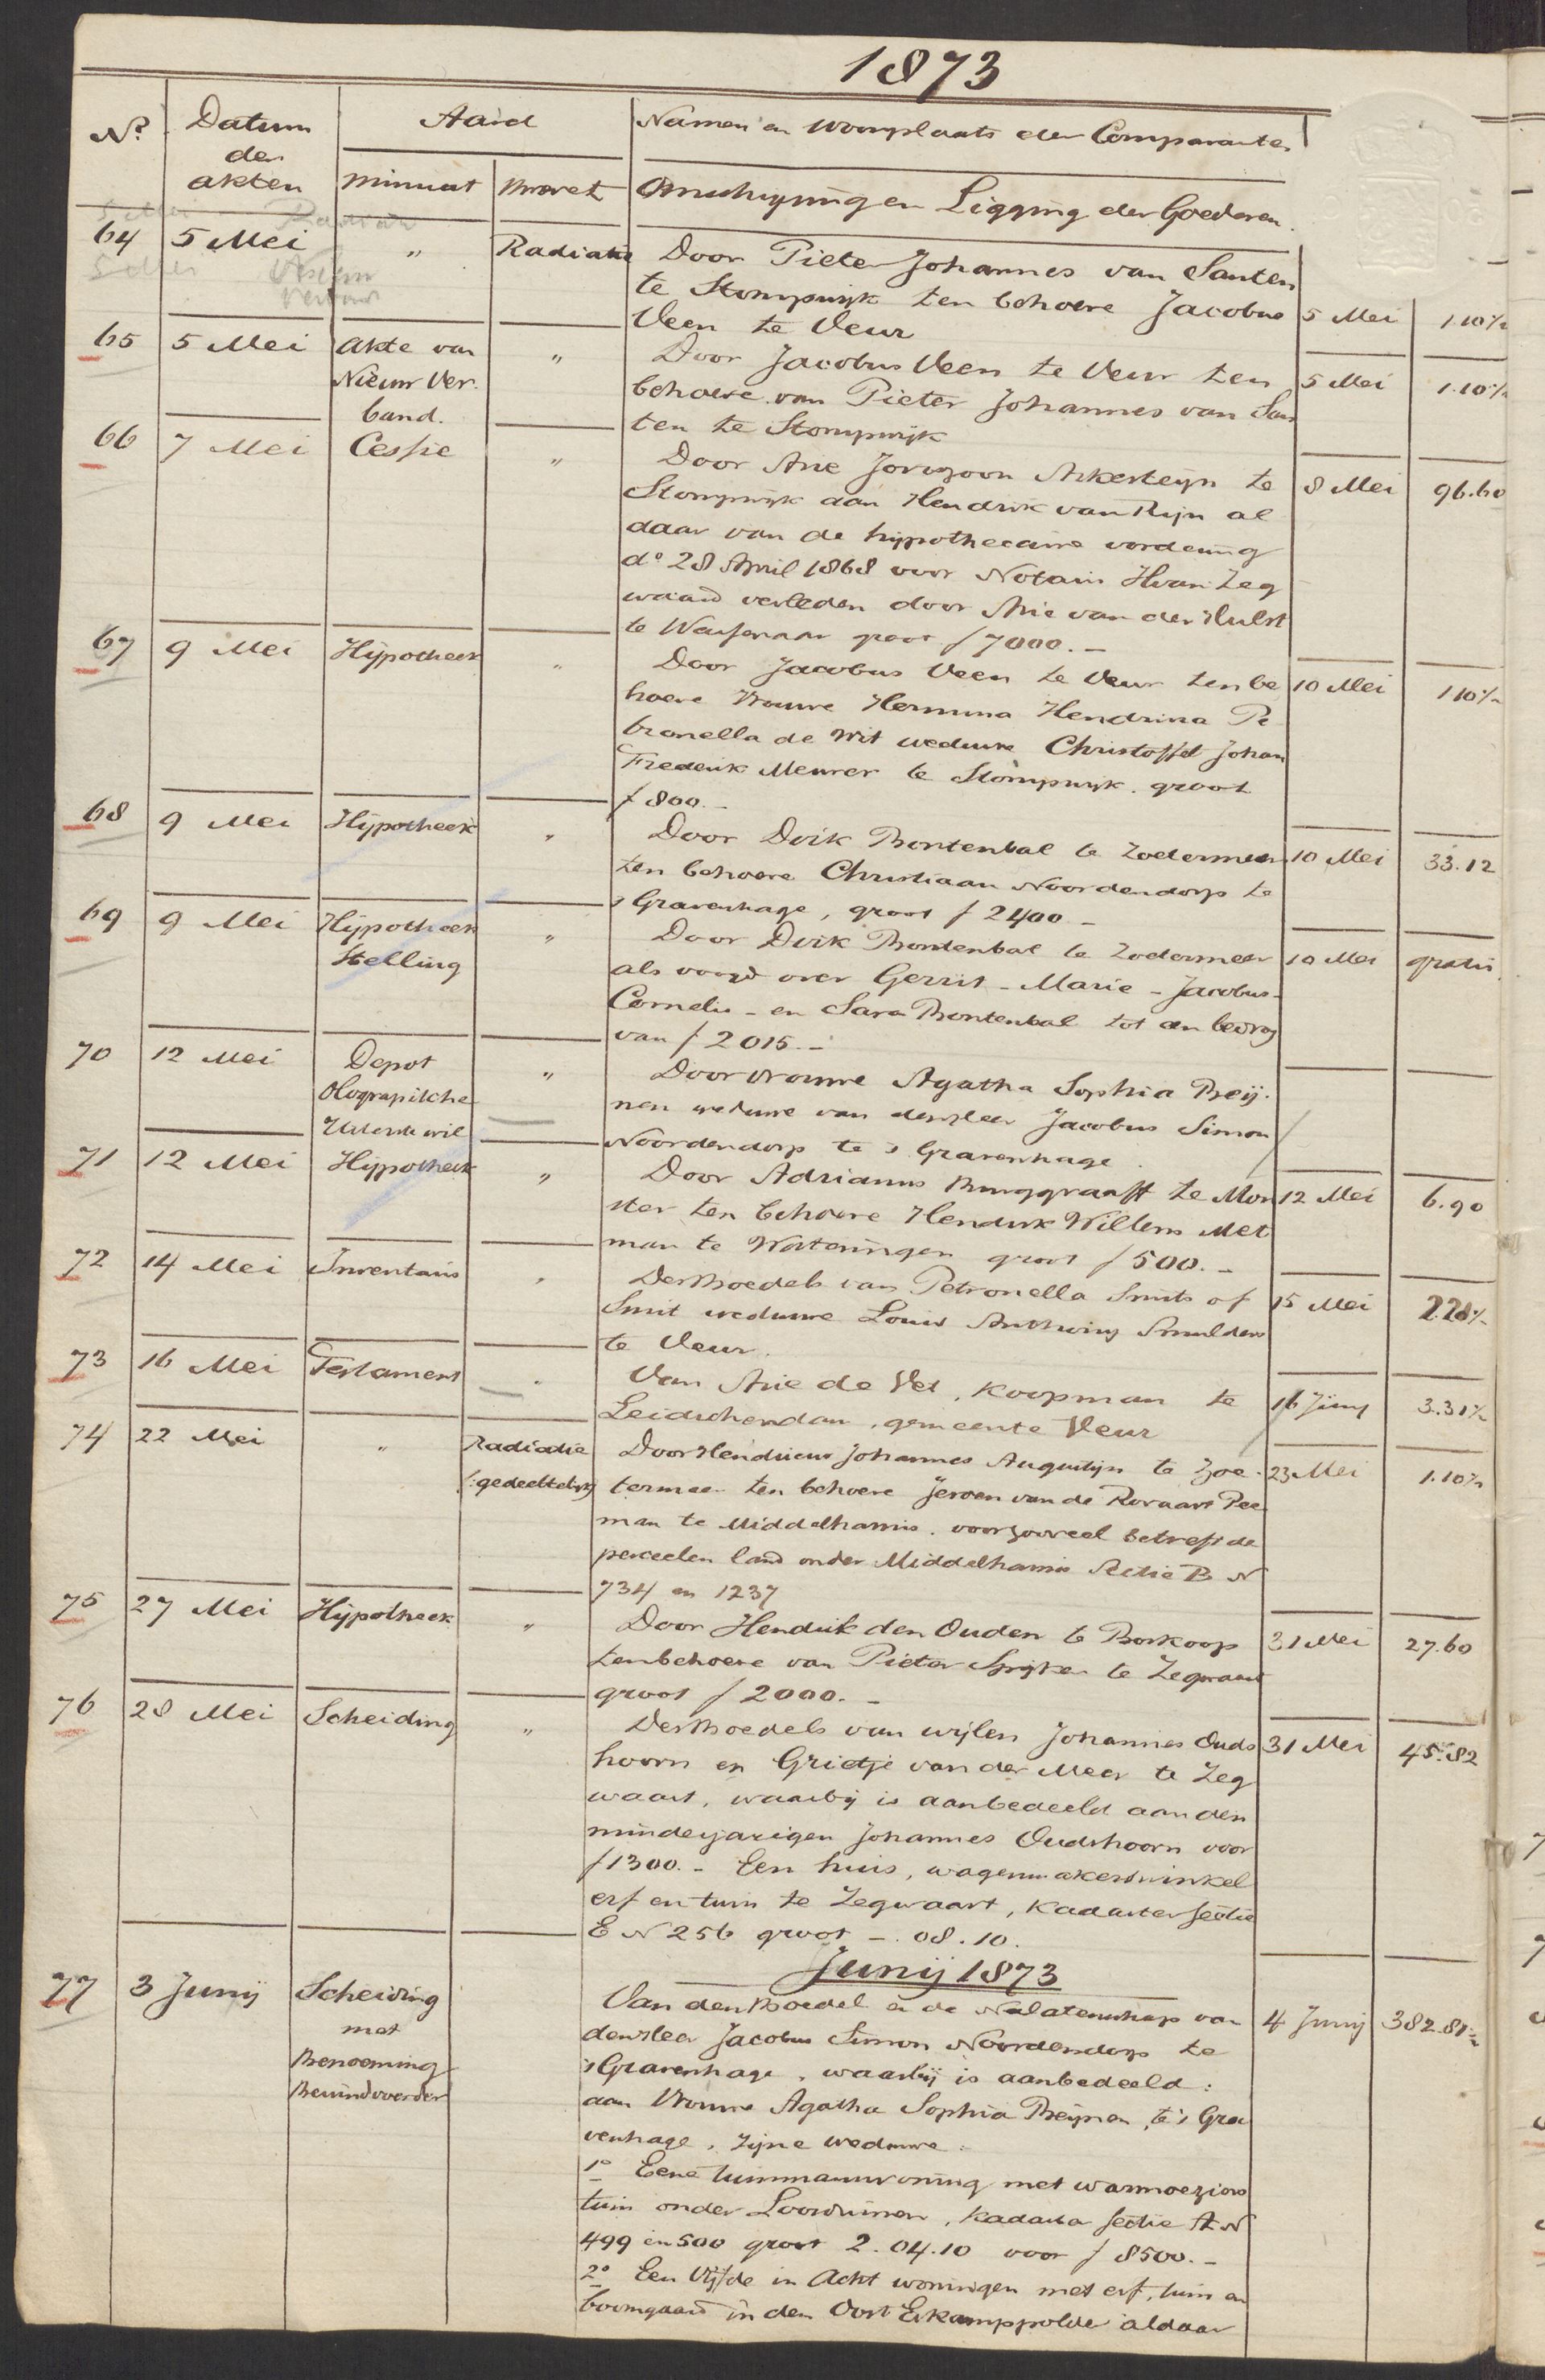 1873
No. Datum der akten Aard Namen en Woonplaats der Comparanten
Minuut Brevet Omschrijving en Ligging der Goederen.
64 5 Mei " Radiatie Door Pieter Johannes van Santen
te Stompwijk ten behoeve Jacobus
Veen te Veur 5 Mei 1.10½
65 5 Mei Akte van " Door Jacobus Veen te Veur ten
Nieuw Ver- behoeve van Pieter Johannes van San 5 Mei 1.10½
band. ten te Stompwijk
66 7 Mei Cessie " Door Arie Joriszoon Ankersteijn te 8 Mei 96.60
Stompwijk aan Hendrik van Rijn al
daar van de hypothecaire vordering
do 28 April 1868 voor Notaris H van Zeg
waard verleden door Arie van der Hulst
te Wassenaar groot f 7000.-
67 9 Mei Hijpotheek " Door Jacobus Veen te Veur ten be 10 Mei 1.10½
hoeve Vrouwe Hermina Hendrina Pe
tronella de Wit weduwe Christoffel Johan
Frederik Meurer te Stompwijk. groot
f 800.-
68 9 Mei Hijpotheek " Door Dirk Bontenbal te Zoetermeer 10 Mei 33.12
ten behoeve Christiaan Noordendorp te
s Gravenhage, groot f 2400-
69 9 Mei Hijpotheek " Door Dirk Bontenbal te Zoetermeer 10 Mei gratis.
Stelling als voogd over Gerrit - Marie - Jacobus-
Cornelis - en Sara Bontenbal tot een bedrag
van f 2015.-
70 12 Mei Depot " Door Vrouwe Agatha Sophia Beij-
Olographische nen weduwe van den Heer Jacobus Simon
Uiterste wil Noordendorp te s Gravenhage.
71 12 Mei Hijpotheek " Door Adrianus Bruggraaff te Mon 12 Mei 6.90
ster ten behoeve Hendrik Willem Met
man te Wateringen groot f 500.-
72 14 Mei Inventaris " Des Boedels van Petronella Smits of 15 Mei 2.20½
Smit weduwe Louis Anthonij Smulders
te Veur.
73 16 Mei Testament " Van Arie de Vet, Koopman te 16 Junij 3.31½
Leidschendam, gemeente Veur
74 22 Mei " Radiatie Door Hendricus Johannes Augustijn te Zoe- 23 Mei 1.10½
(gedeeltelijk) termeer ten behoeve Jeroen van de Rovaart Pee
man te Middelharnis. voorzooveel betreft de
perceelen land onder Middelharnis Sectie B N
734 en 1237
75 27 Mei Hijpotheek " Door Hendrik den Ouden te Boskoop 31 Mei 27.60
ten behoeve van Pieter Spijker te Zegwaart
groot f 2000.-
76 28 Mei Scheiding " Des Boedels van wijlen Johannes Ouds 31 Mei 45.82
hoorn en Grietje van der Meer te Zeg
waart, waarbij is aanbedeeld aan den
minderjarigen Johannes Oudshoorn voor
f 1300.- Een huis, wagenmakerswinkel
erf en tuin te Zegwaart, Kadaster Sectie
E N 256 groot -. 08.10.
Junij 1873
77 3 Junij Scheiding Van den Boedel en de Nalatenschap van 4 Junij 382.81½
met den Heer Jacobus Simon Noordendorp te
Benoeming s Gravenhage, waarbij is aanbedeeld:
Bewindvoerder aan Vrouwe Agatha Sophia Beijnen, te s Gra
venhage, zijne weduwe:
1o Eene tuinmanswoning met warmoeziers
tuin onder Loosduinen, Kadaster Sectie A N
499 en 500 groot 2.04.10 voor f 8500.-
2o Een Vijfde in Acht woningen met erf, tuin en
boomgaard in den Oost Eskamppolder aldaar